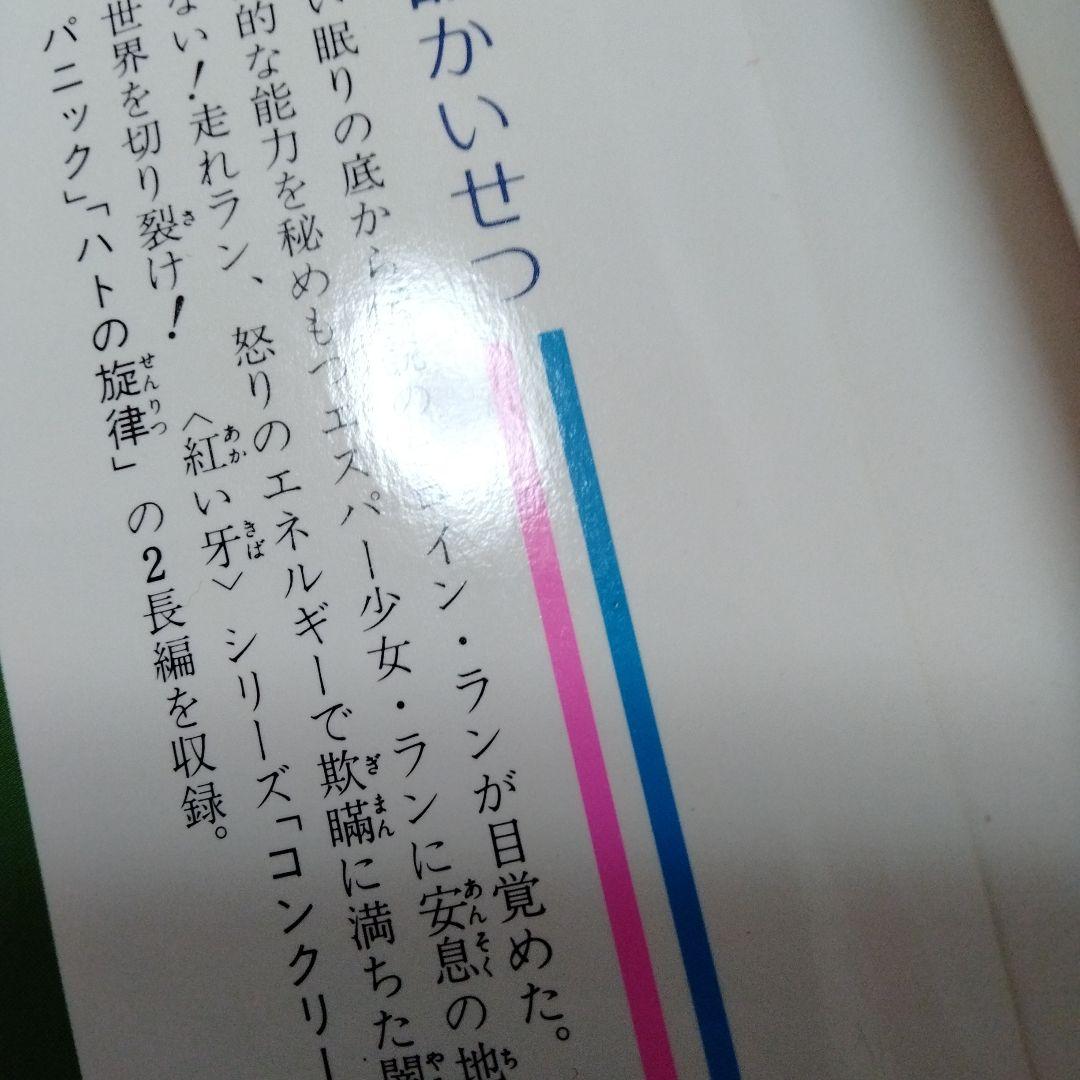 かいせつ
い眠りの底から の イン・ランが目覚めた。
的な能力を秘めもつエスパー少女・ランに安息の地
あんそく ち
ない！走れラン、怒りのエネルギーで欺瞞に満ちた闇
ぎまん や
世界を切り裂け！〈紅い牙〉シリーズ「コンクリー
さ あか きば
パニック」「ハトの旋律」の2長編を収録。
せんりつ